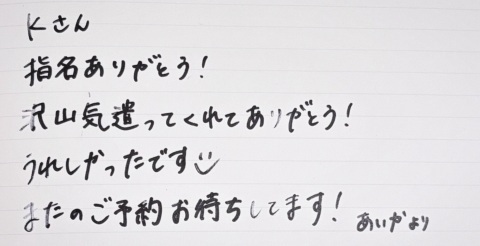 Kさん
指名ありがとう!
沢山気遣ってくれてありがとう!
うれしかったです
またのご予約お待ちしてます!
あいかより